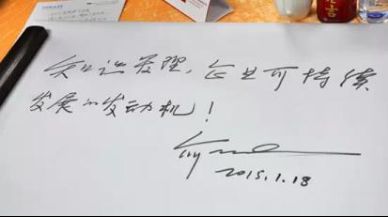 知识管理，企业可持续
发展的发动机！
2015.1.18